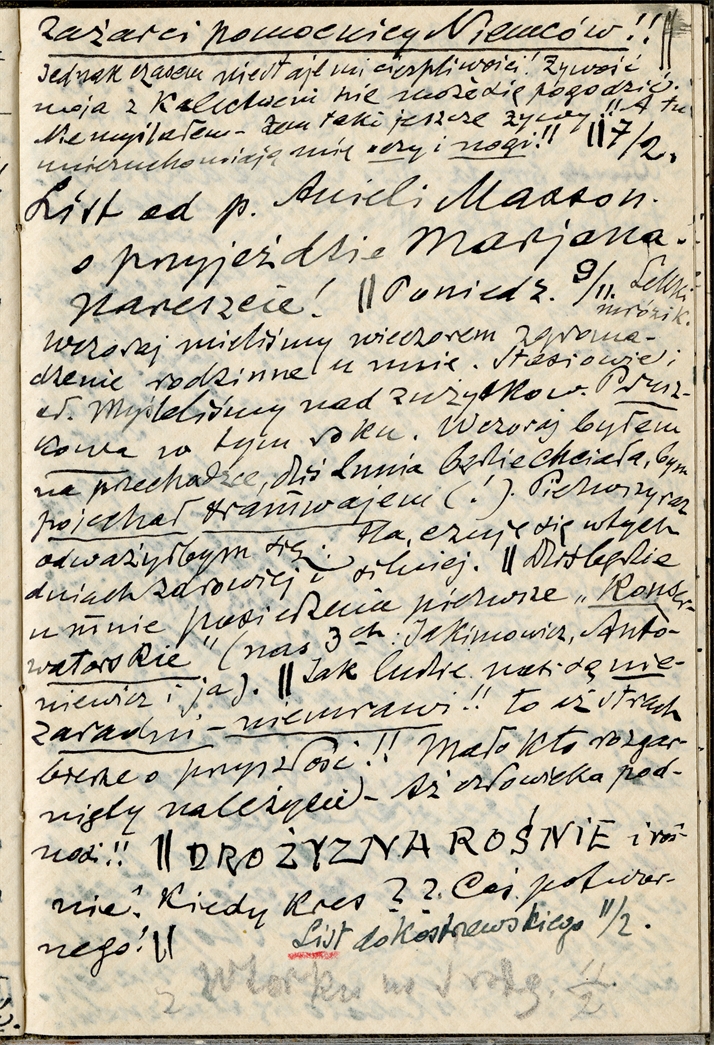 zażarci pomocnicy Niemców!! ||
Jednak czasem niestaje mi cierpliwości! Żywość
moja z Kalectwem nie może się pogodzić.
Nie myślałem – żem taki jeszcze żywy!! A tu
unieruchomiają mię oczy i nogi!! || 7/2.
List od p. Anieli Masson.
o przyjeździe Marjana.
nareszcie! || Poniedz. 9/II. Lekki
mrózik.
Wczoraj mieliśmy wieczorem zgroma-
dzenie rodzinne u mnie. Stasiowie i
ed. Myśleliśmy nad zużytkow. Prusz-
kowa w tym roku. Wczoraj byłem
na przechadzce, dziś Lunia będzie chciała, bym
pojechał tramwajem (!). Pierwszy raz
odważyłbym się. Ha, czuję się w tych
dniach zdrowiej i silniej. || Dziś będzie
u mnie posiedzenie pierwsze „Konser-
watorskie" (nas 3ch: Jakimowicz, Anto-
niewicz i ja). || Jak ludzie nasi są nie-
zaradni – niemrawi!! to aż strach
bierze o przyszłość!! Mało kto rozgar-
nięty należycie – Aż człowieka pod-
nosi!! || DROŻYZNA ROŚNIE i roś-
nie! Kiedy Kres ?? Coś potwor-
nego! || List do Kostrzewskiego 11/2.
z Wtorku na Srodę. 11/2.